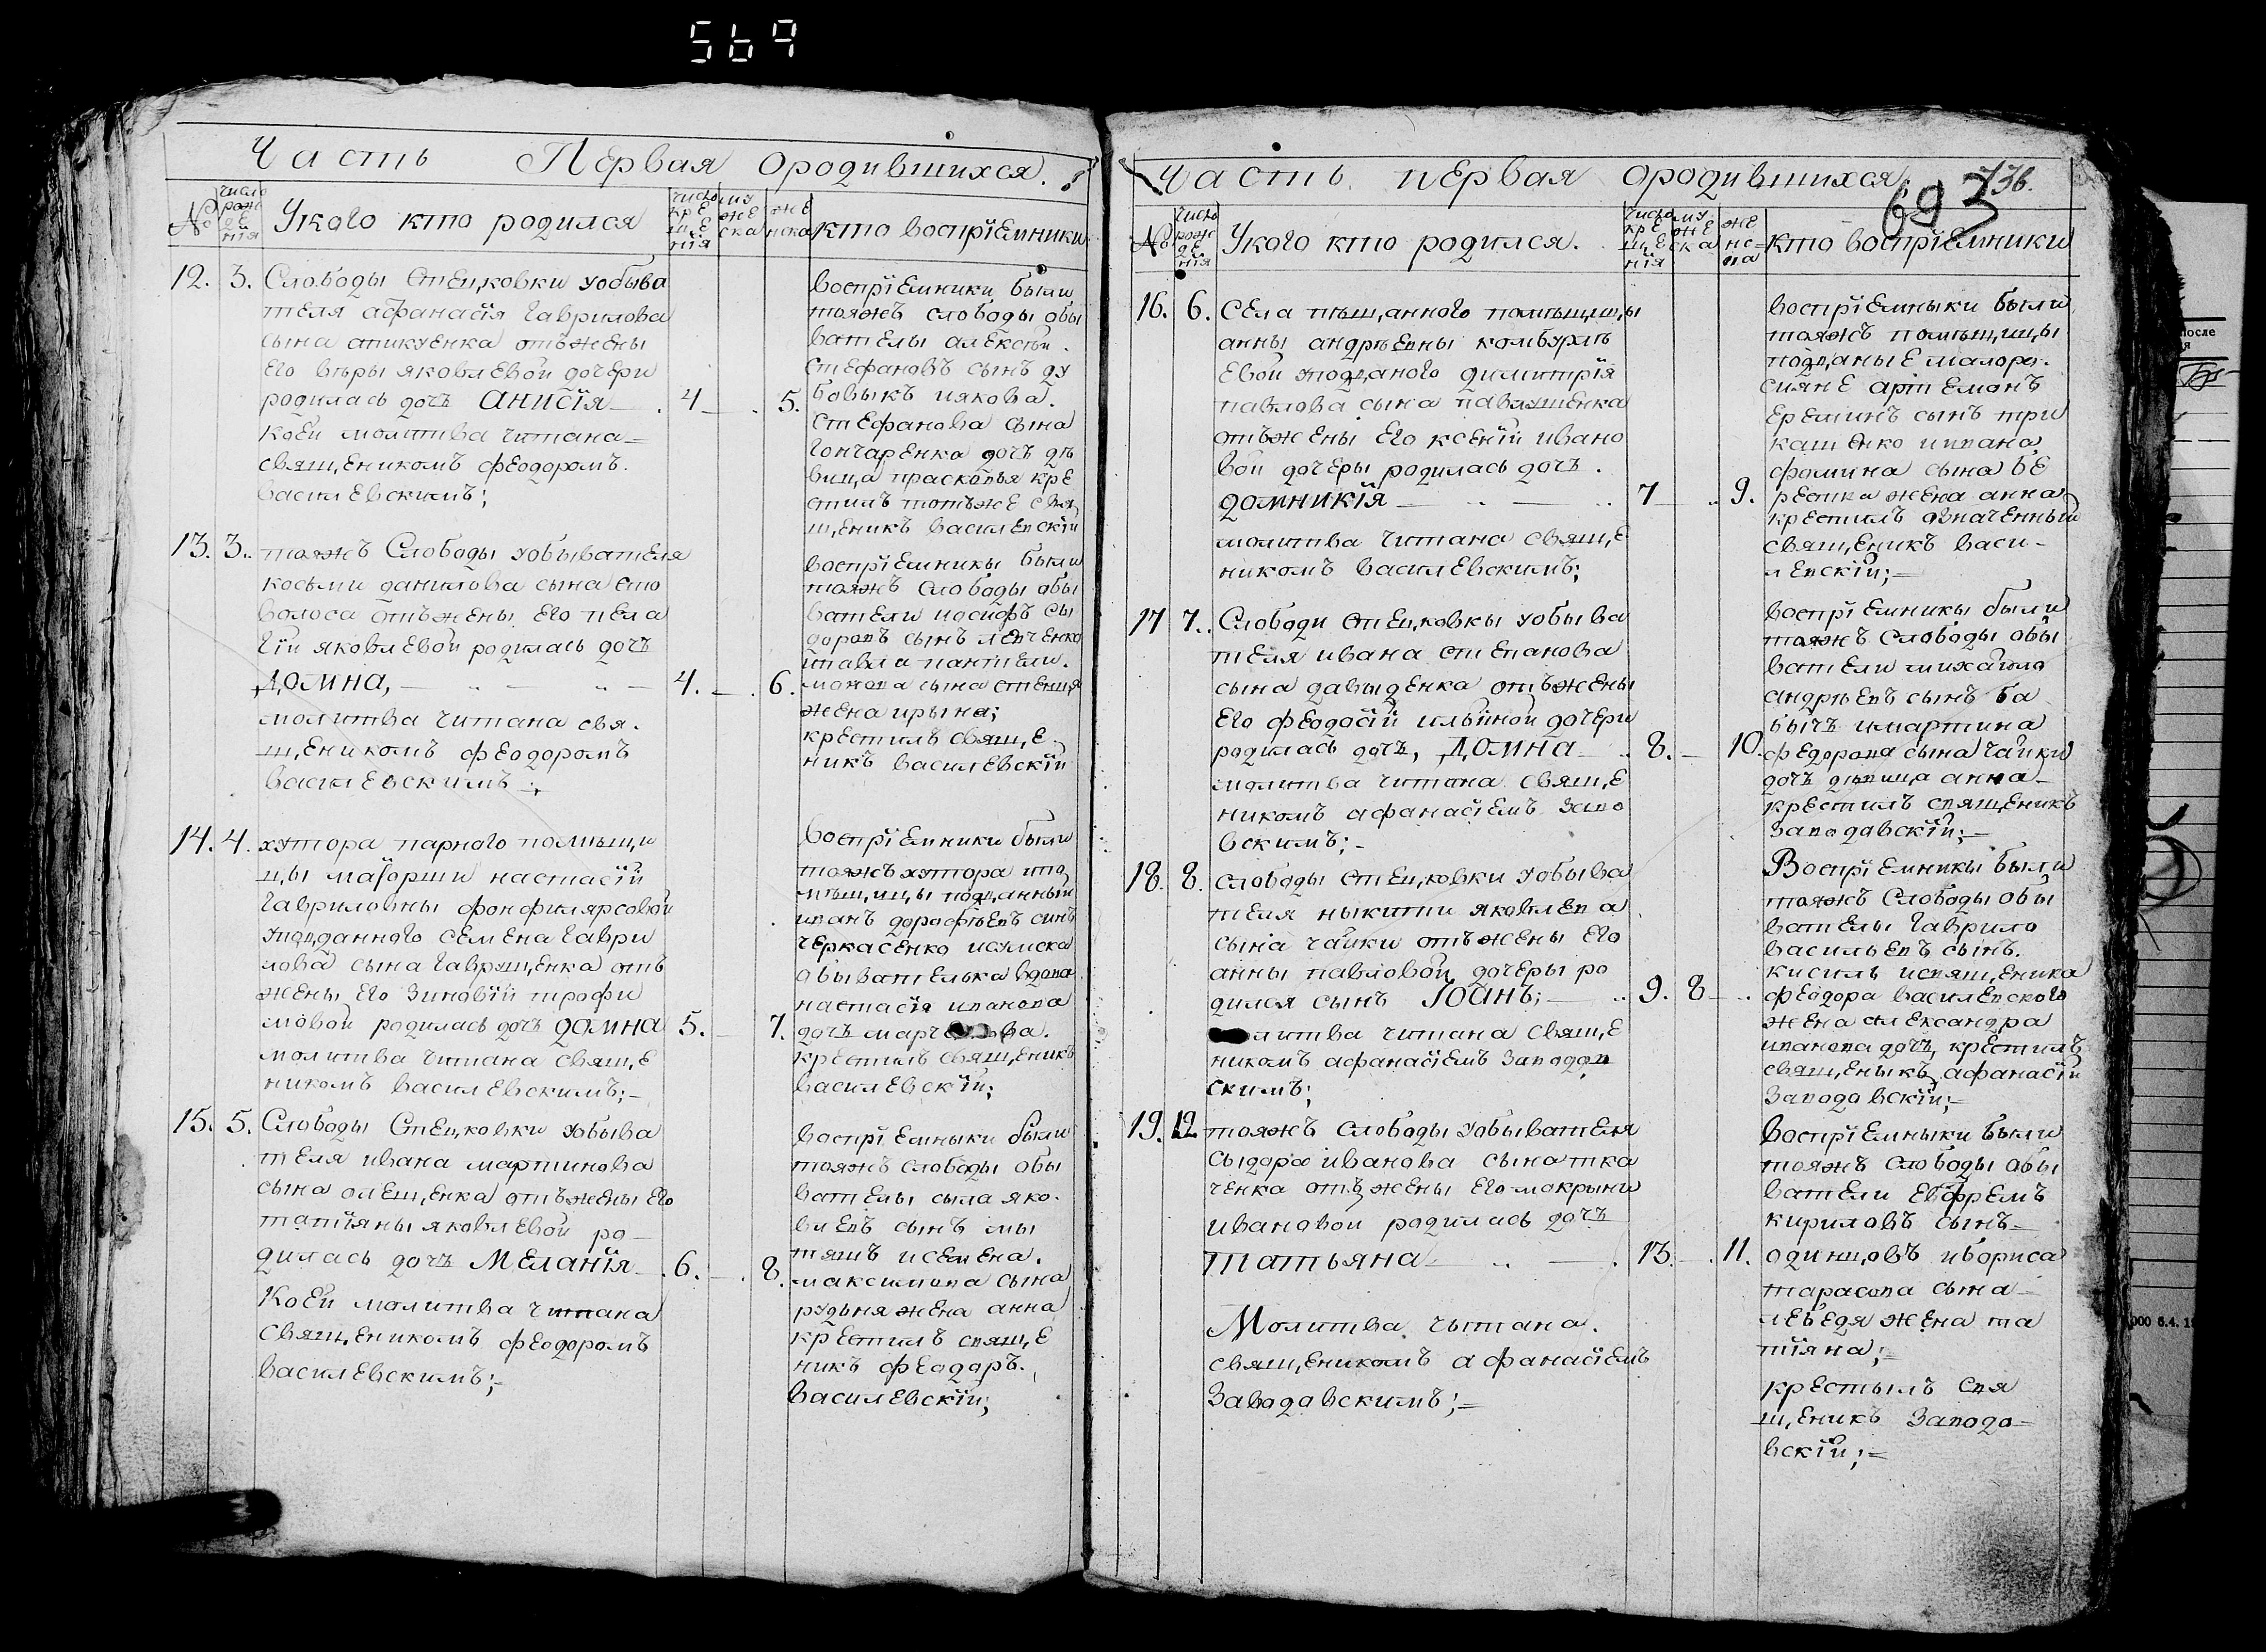 569
Часть Первая ородившихся.
№
число рож де нїя
Укого кто родился
число кре ще нїя
му же ска
же нска
кто воспрїемники
12. 3. Слободы Стецковки уобыва
теля афанасїя гаврилова
сына отжены
его вѣры яковлевой дочери
родилась дочъ Анисїя 4 5.
коей молитва читана
священикомъ феодоромъ.
василевскимъ;
воспрїемники были
тояжъ слободы обы
вателы алексѣй.
стефановъ сынъ ду
бовыкъ иякова.
стефанова сына
гончаренка дочъ дѣ
вица прасковья кре
стилъ тотъже свя
щеникъ василевскїй
13. 3. тояжъ Слободы уобывателя
косьми данилова сына сто
волоса отъжены его пела
гїи яковлевой родилась дочъ
Домна, 4. 6.
молитва читана свя.
щеникомъ феодоромъ
василевскимъ;
воспрїемникы были
тояжъ слободы обы
вателы иосифъ си
доровъ сынъ левченко
ипавла пантели.
монова сына
жена ирына;
крестилъ свяще.
никъ василевскїй
14. 4. хутора парного помѣщи
цы маїорши настасїи
гавриловны фонфилярсовой
уподданного семена гаври
лова сына гаврищенка отъ
жены его зиновїи трофи
мовой родилась дочъ домна 5. 7.
молитва читана свяще
никомъ василевскимъ;
воспрїемники были
тояжъ хутора
мѣщицы подданный
иванъ дорофѣевъ синъ
черкасенко
обывателька вдова
настасїя иванова
дочъ
крестилъ священикъ
василевскїй;
15. 5. Слободы Стецковки уобыва
теля ивана мартинова
сына олещенка отъжены его
татїяны яковлевой ро
дилась дочъ Меланїя 6. 8.
Коей молитва читана
священикомъ феодоромъ
василевскимъ;
воспрїемныки были
тояжъ слободы обы
вателы сыла яко.
влевъ сынъ мы
тяшъ исемена.
максимова сына
рудыня жена анна
крестилъ свяще
никъ феодоръ.
василевскїй;
Часть первая ородившихся
693
736.
№
число рож де нїя
Укого кто родился.
число кре ще нїя
му же ска
же нс ка
кто воспрїемники
16. 6. Села пѣщанного помѣщицы
анны андрѣевны комбурлѣ
евой уподданого димитрїя
павлова сына павлушенка
отъжены его ксенїи ивано
вой дочеры родилась дочъ.
домникїя 7 9.
молитва читана свяще
никомъ василевскимъ;
воспрїемныки были
тояжъ помѣщицы
подданые малоро.
сияне артемонъ
ереминъ сынъ три
кашенко ивана
фомина сына бе
рестка жена анна
крестилъ означенный
священикъ васи
левскїй;
17 7. Слободи Стецковкы уобыва
теля ивана степанова
сына давыденка отъжены
его феодосїй ильиной дочери
родилась дочъ, Домна 8. 10.
молитва читана свяще
никомъ афанасїемъ заво
вскимъ;
воспрїемникы были
тояжъ слободы обы
вателы михайло
андрѣевъ сынъ ба
бычъ имартина
федорова сына чайки
дочъ дѣвица анна
крестилъ священикъ
заводовскїй;
18. 8. слободы стецковки уобыва
теля ныкиты яковлева
сына чайки отъжены его
анны павловой дочеры ро
дился сынъ Іоанъ; 9. 8
литва читана свяще
никомъ афанасїемъ заводов
скимъ;
Воспрїемникы были
тояжъ Слободы обы
вателы гаврило
васильевъ сынъ.
кисиль исвященика
феодора василевского
жена александра
иванова дочъ, крестилъ
священыкъ афанасїй
заводовскїй;
19. 12. тояжъ слободы уобывателя
сыдора иванова сынаТка
ченка отъжены его макрыни
ивановой родилась дочъ
татьяна 13. 11.
Молитва читана.
священикомъ афанасїемъ
заводовскимъ;
воспрїемныки были
тояжъ слободы обы
ватели ефремъ
кириловъ сынъ
одинцовъ ибориса
тарасова сына
лебедя жена та
тїяна;
крестылъ свя
щеникъ заводо
вскїй;